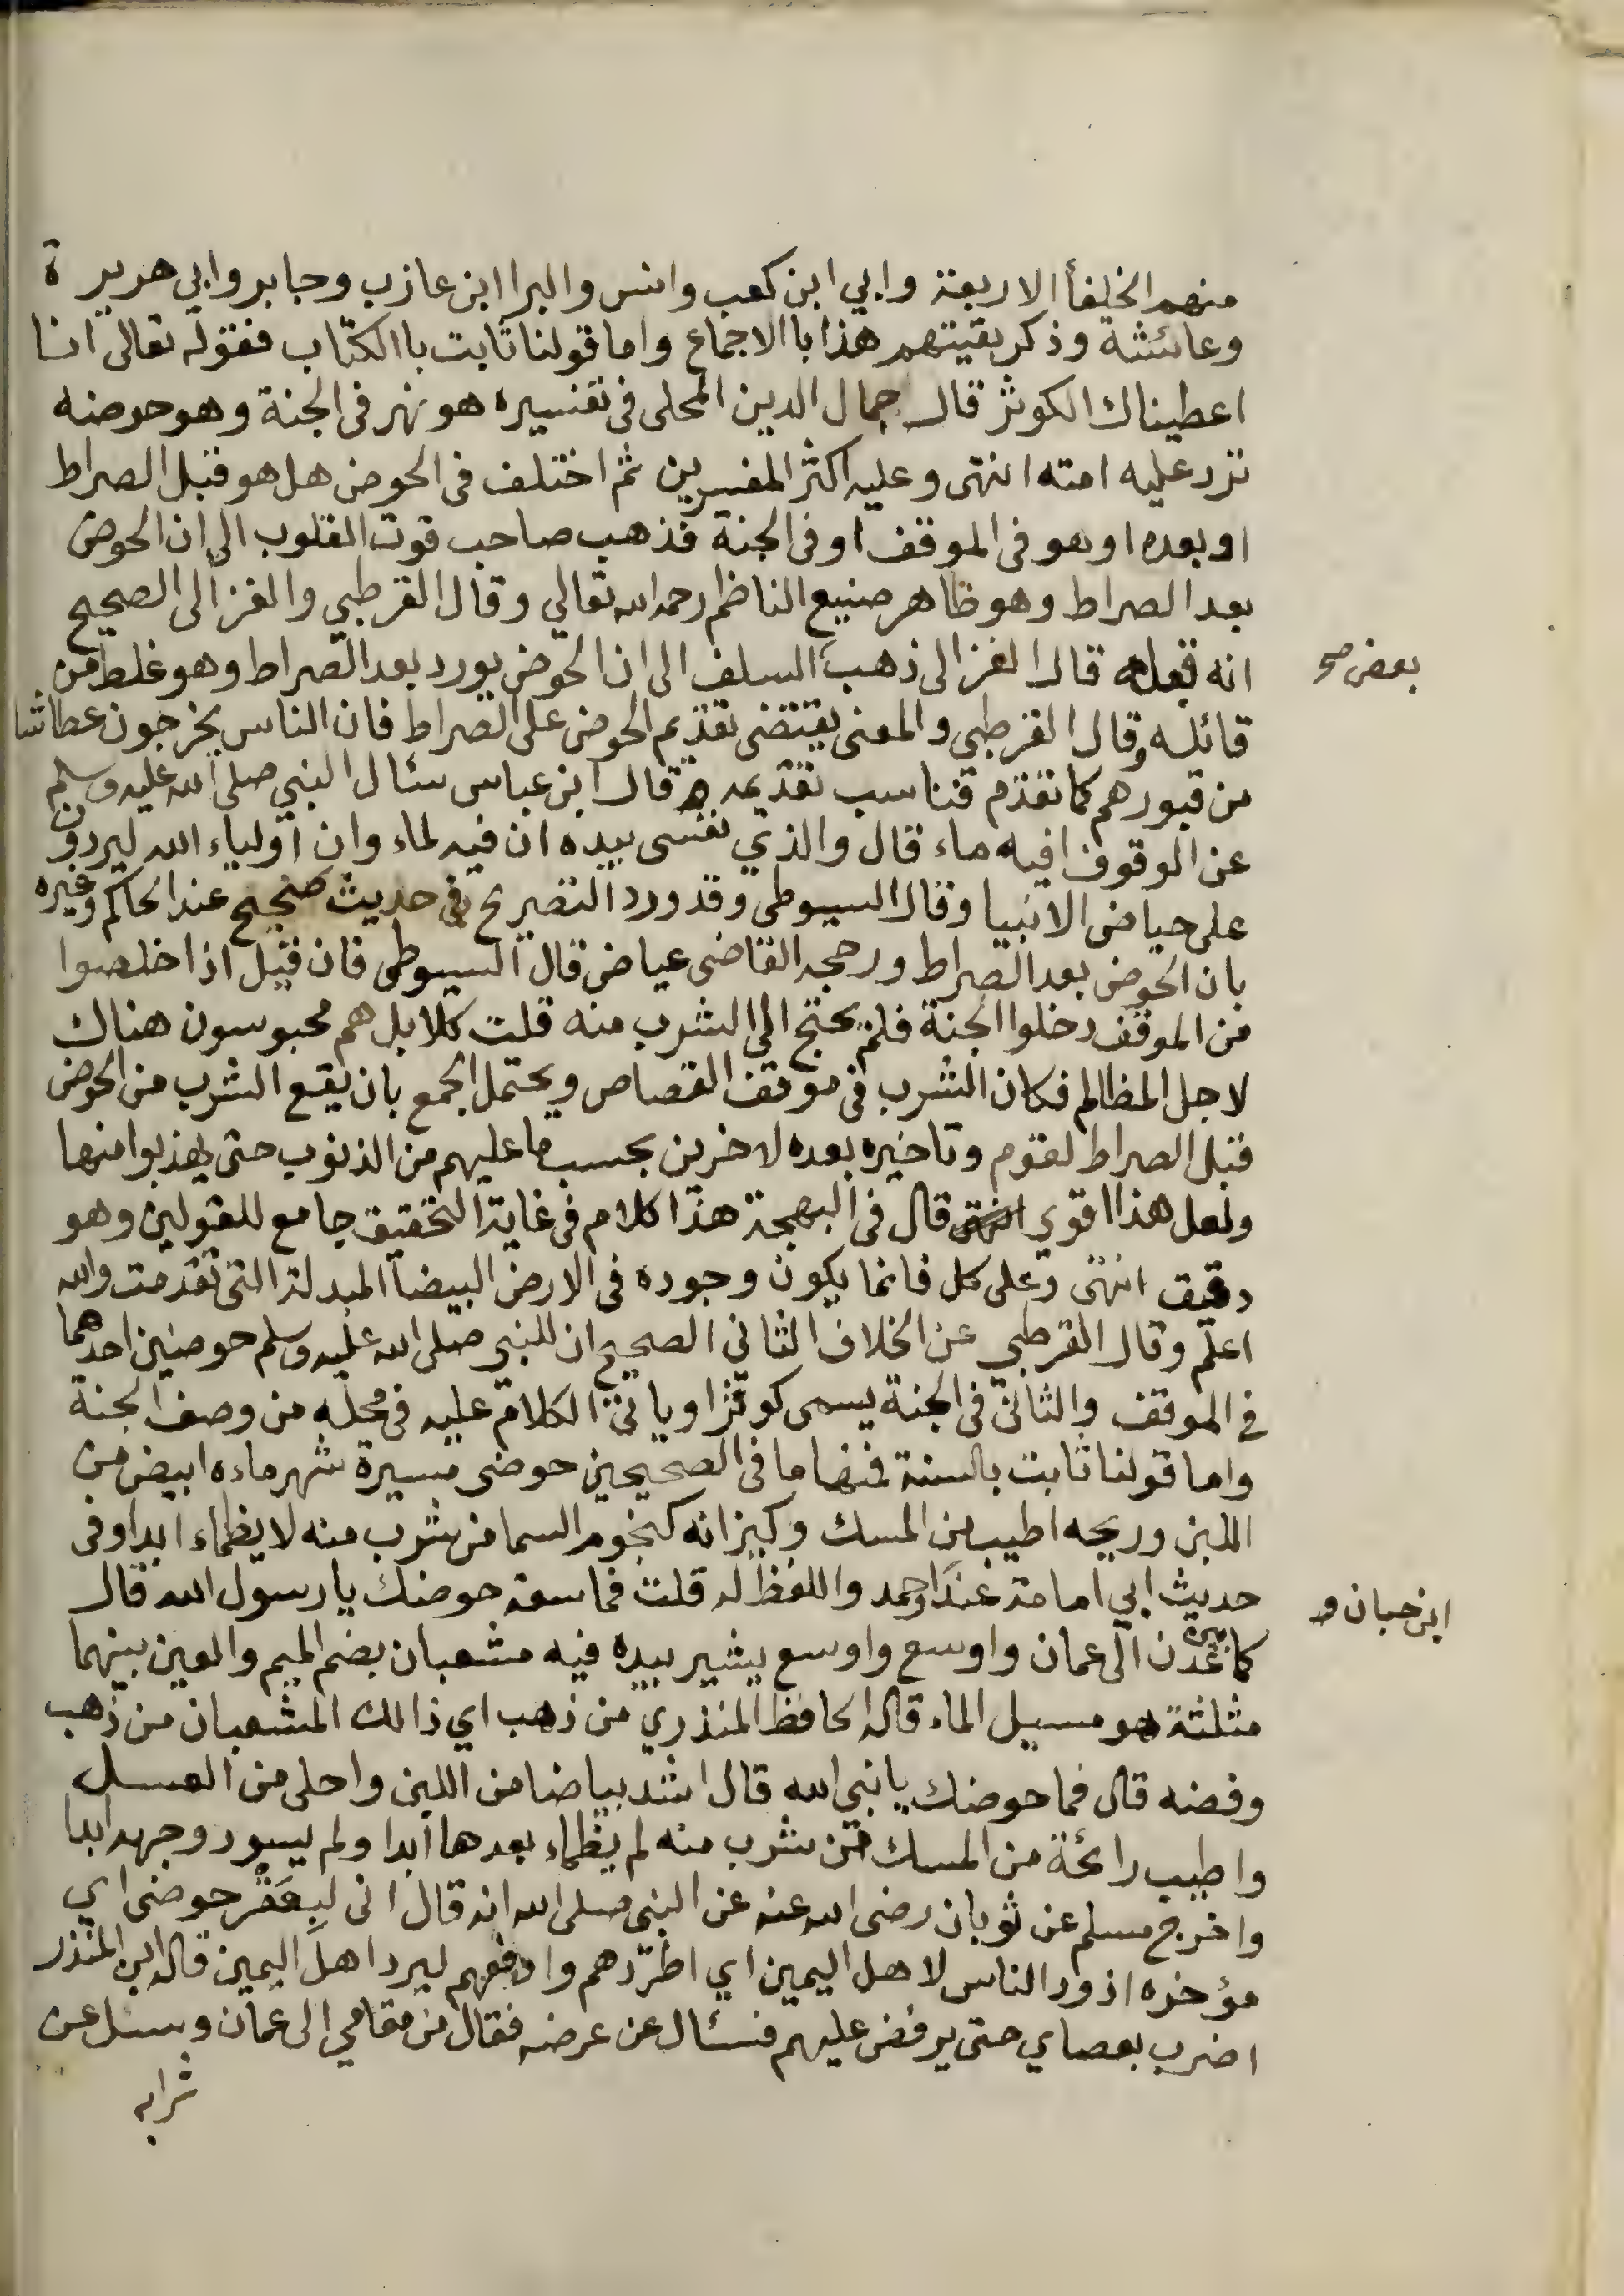 منهم الخلفأ الاربعة وابي ابن كعب وانس والبرا ابن عازب وجابر وابي هريرة
وعائشة وذكر بقيتهم هذا باالاجماع واما قولنا ثابت باالكتاب فقوله تعالى انا
اعطيناك الكوثر قال جمال الدين المحلى فى تفسيره هو نهر فى الجنة وهو حوضه
ترد عليه امته انتهى وعليه اكثر المفسرين ثم اختلف فى الحوض هل هو قبل الصراط
او بعده او هو فى الموقف او فى الجنة فذهب صاحب قوت القلوب الى ان الحوض
بعد الصراط وهو ظاهر صنيع الناظم رحمه الله تعالي وقال القرطبي والغزالى الصحيح
انه قبله قال الغزالى ذهب السلف الى ان الحوض يورد بعد الصراط وهو غلط من
بعض صح
قائله وقال القرطبي والمعنى يقتضى تقديم الحوض على الصراط فان الناس يخرجون عطاشا
من قبورهم كما تقدم فناسب تقديمه قال ابن عباس سئال النبي صلى الله عليه وسلم
عن الوقوف افيه ماء قال والذي نفسى بيده ان فيه لماء وان أولياء الله ليردون
على حياض الانبيا وقال السيوطى وقد ورد التصريح فى حديث صحيح عند الحاكم وغيره
بان الحوض بعد الصراط ورجحه القاضى عياض قال السيوطى فان قيل اذا خلصوا
من الموقف دخلوا الجنة فلم يحتج الي الشرب منه قلت كلا بل هم محبوسون هناك
لاجل المظالم فكان الشرب فى موقف القصاص ويحتمل الجمع بان يقع الشرب من الحوض
قبل الصراط لقوم وتاخيره بعده لاخرين بحسب ما عليهم من الذنوب حتى يهذبوا منها
ولعل هذا اقوى انتهى قال فى البهجة هذا كلام فى غاية التحقيق جامع للقولين وهو
دقيق انتهى وعلى كل فانما يكون وجوده فى الارض البيضأ المبدلة التى تقدمت والله
اعلم وقال القرطبي عن الخلاف الثانى الصحيح ان للنبي صلى الله عليه وسلم حوضين احدهما
في الموقف والثانى فى الجنة يسمى كوثرا وياتى الكلام عليه فى محله من وصف الجنة
واما قولنا ثابت بالسنة فمنها ما فى الصحيحين حوضى مسيرة شهر ماءه ابيض من
اللبن وريحه اطيب من المسك وكيزانه كنجوم السما من شرب منه لا يظماء ابدا وفى
حديث ابي امامة عند احمد واللفظ له قلت فما سعة حوضك يا رسول الله قال
ابن حبان و
كما بين عدن الى عمان واوسع واوسع يشير بيده فيه مشعبان بضم الميم والعين بينهما
مثلثة هو مسيل الماء قاله الحافظ المنذري من ذهب اي ذالك المشعبان من ذهب
وفضه قال فما حوضك يا نبي الله قال اشد بياضا من اللبن واحلى من العسل
واطيب رائحة من المسك من شرب منه لم يظماء بعدها ابدا ولم يسود وجهه ابدا
واخرج مسلم عن ثوبان رضى الله عنه عن النبى صلى الله انه قال انى لبِعَقْر حوضى اي
مؤخره اذود الناس لاهل اليمين اي اطردهم وادفعهم ليرد اهل اليمين قاله ابن المنذر
اضرب بعصاي حتى يرفض عليهم فسئال عن عرضه فقال من مقامي الى عمان وسئل عن
شرابه